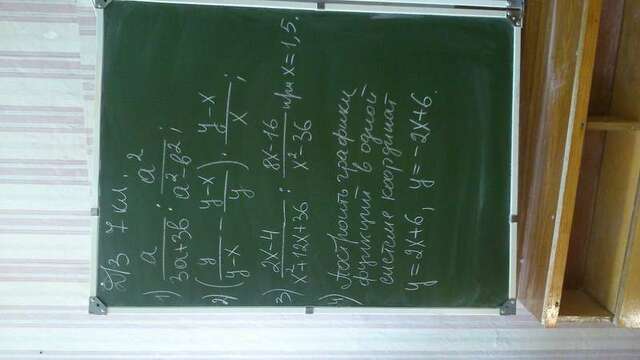 Д/З 7 кл.
1) a/(3a+3b) : a²/(a²-b²);
2) (y/(y-x) - (y-x)/y) · (y-x)/x;
3) (2x-4)/(x²+12x+36) : (8x-16)/(x²-36) при x=1,5.
4) Построить графики
функций в одной
системе координат
y=2x+6, y=-2x+6.